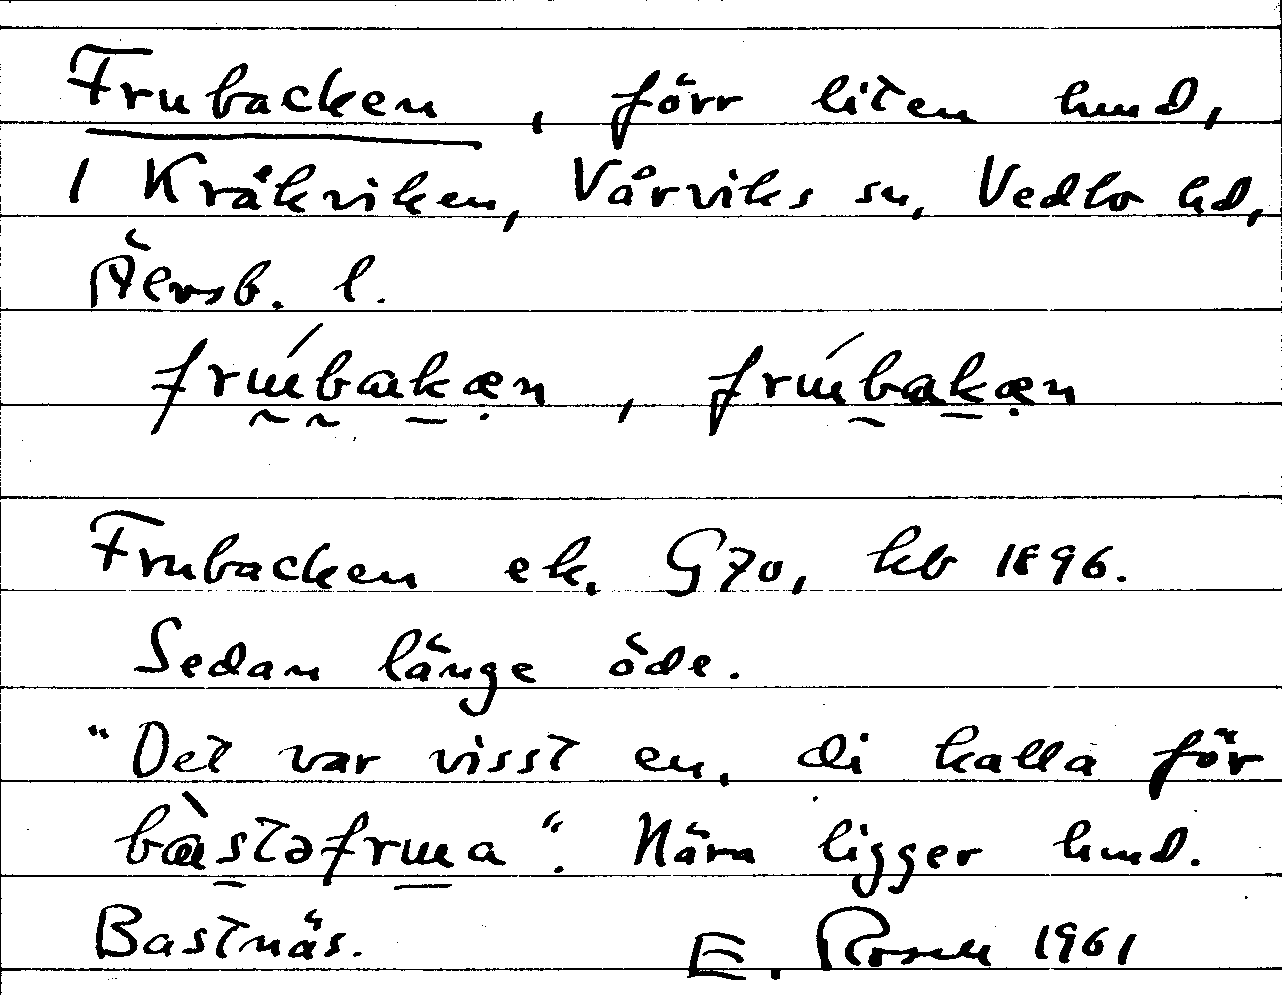 Frubacken, förr liten hmd,
i Kråkviken, Vårviks sn, Vedbo hd,
Älvsb. l.
frúbakæn, frúbakæn
Frubacken ek. G70, kb 1896.
Sedan länge öde.
"Det var visst en, di kalla för
bàstəfrua". Nära ligger hmd.
Bastnäs. E. Rosell 1961